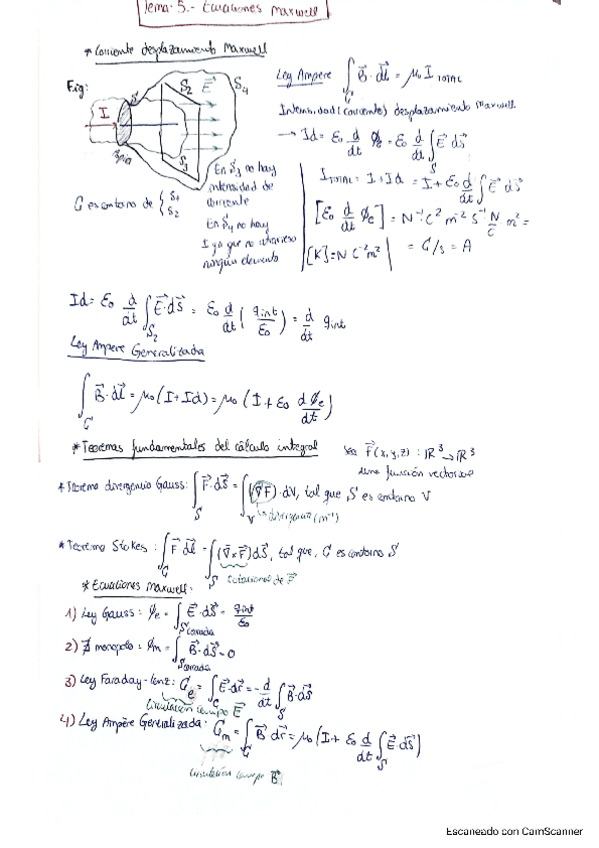 Tema-5.- Ecuaciones Maxwell
* Corriente desplazamiento Maxwell
Fig:
I
S
S₂
E⃗
S₄
S₃
C es contorno de { S₁ S₂
En S₃ no hay
intensidad de
corriente
En S₄ no hay
I ya que no atraviesa
ningún elemento
Ley Ampere ∫_C B⃗·dl⃗ = μ₀ I TOTAL
Intensidad (corriente) desplazamiento Maxwell.
→ Id = ε₀ d/dt ϕe = ε₀ d/dt ∫_S E⃗ dS⃗
I TOTAL = I + Id = I + ε₀ d/dt ∫ E⃗ dS⃗
[ε₀ d/dt ϕe] = N⁻¹ C² m⁻² S⁻¹ N/C m² =
[K] = N C⁻² m² = C/s = A
Id = ε₀ d/dt ∫_S₂ E⃗·dS⃗ = ε₀ d/dt (qint/ε₀) = d/dt qint
Ley Ampere Generalizada
∫_C B⃗·dl⃗ = μ₀ (I + Id) = μ₀ (I + ε₀ dϕe/dt)
* Teoremas fundamentales del cálculo integral
Sea F⃗(x,y,z) : ℝ³ → ℝ³
una función vectorial
* Teorema divergencia Gauss: ∫_S F⃗·dS⃗ = ∫_V (∇⃗F⃗)·dV, tal que S es contorno V
divergencia (m⁻¹)
* Teorema Stokes: ∫_C F⃗ dl⃗ = ∫_S (∇⃗×F⃗) dS⃗, tal que, C es contorno S
rotaciones de F⃗
* Ecuaciones Maxwell:
1) Ley Gauss: ϕe = ∫_S cerrada E⃗·dS⃗ = qint/ε₀
2) ∄ monopolo: ϕm = ∫_S cerrada B⃗·dS⃗ = 0
3) Ley Faraday-Lenz: Ce = ∫_C E⃗·dr⃗ = -d/dt ∫_S B⃗·dS⃗
Circulación campo E⃗
4) Ley Ampère Generalizada: Cm = ∫_C B⃗ dr⃗ = μ₀ (I + ε₀ d/dt ∫_S E⃗ dS⃗)
circulación campo B⃗
Escaneado con CamScanner